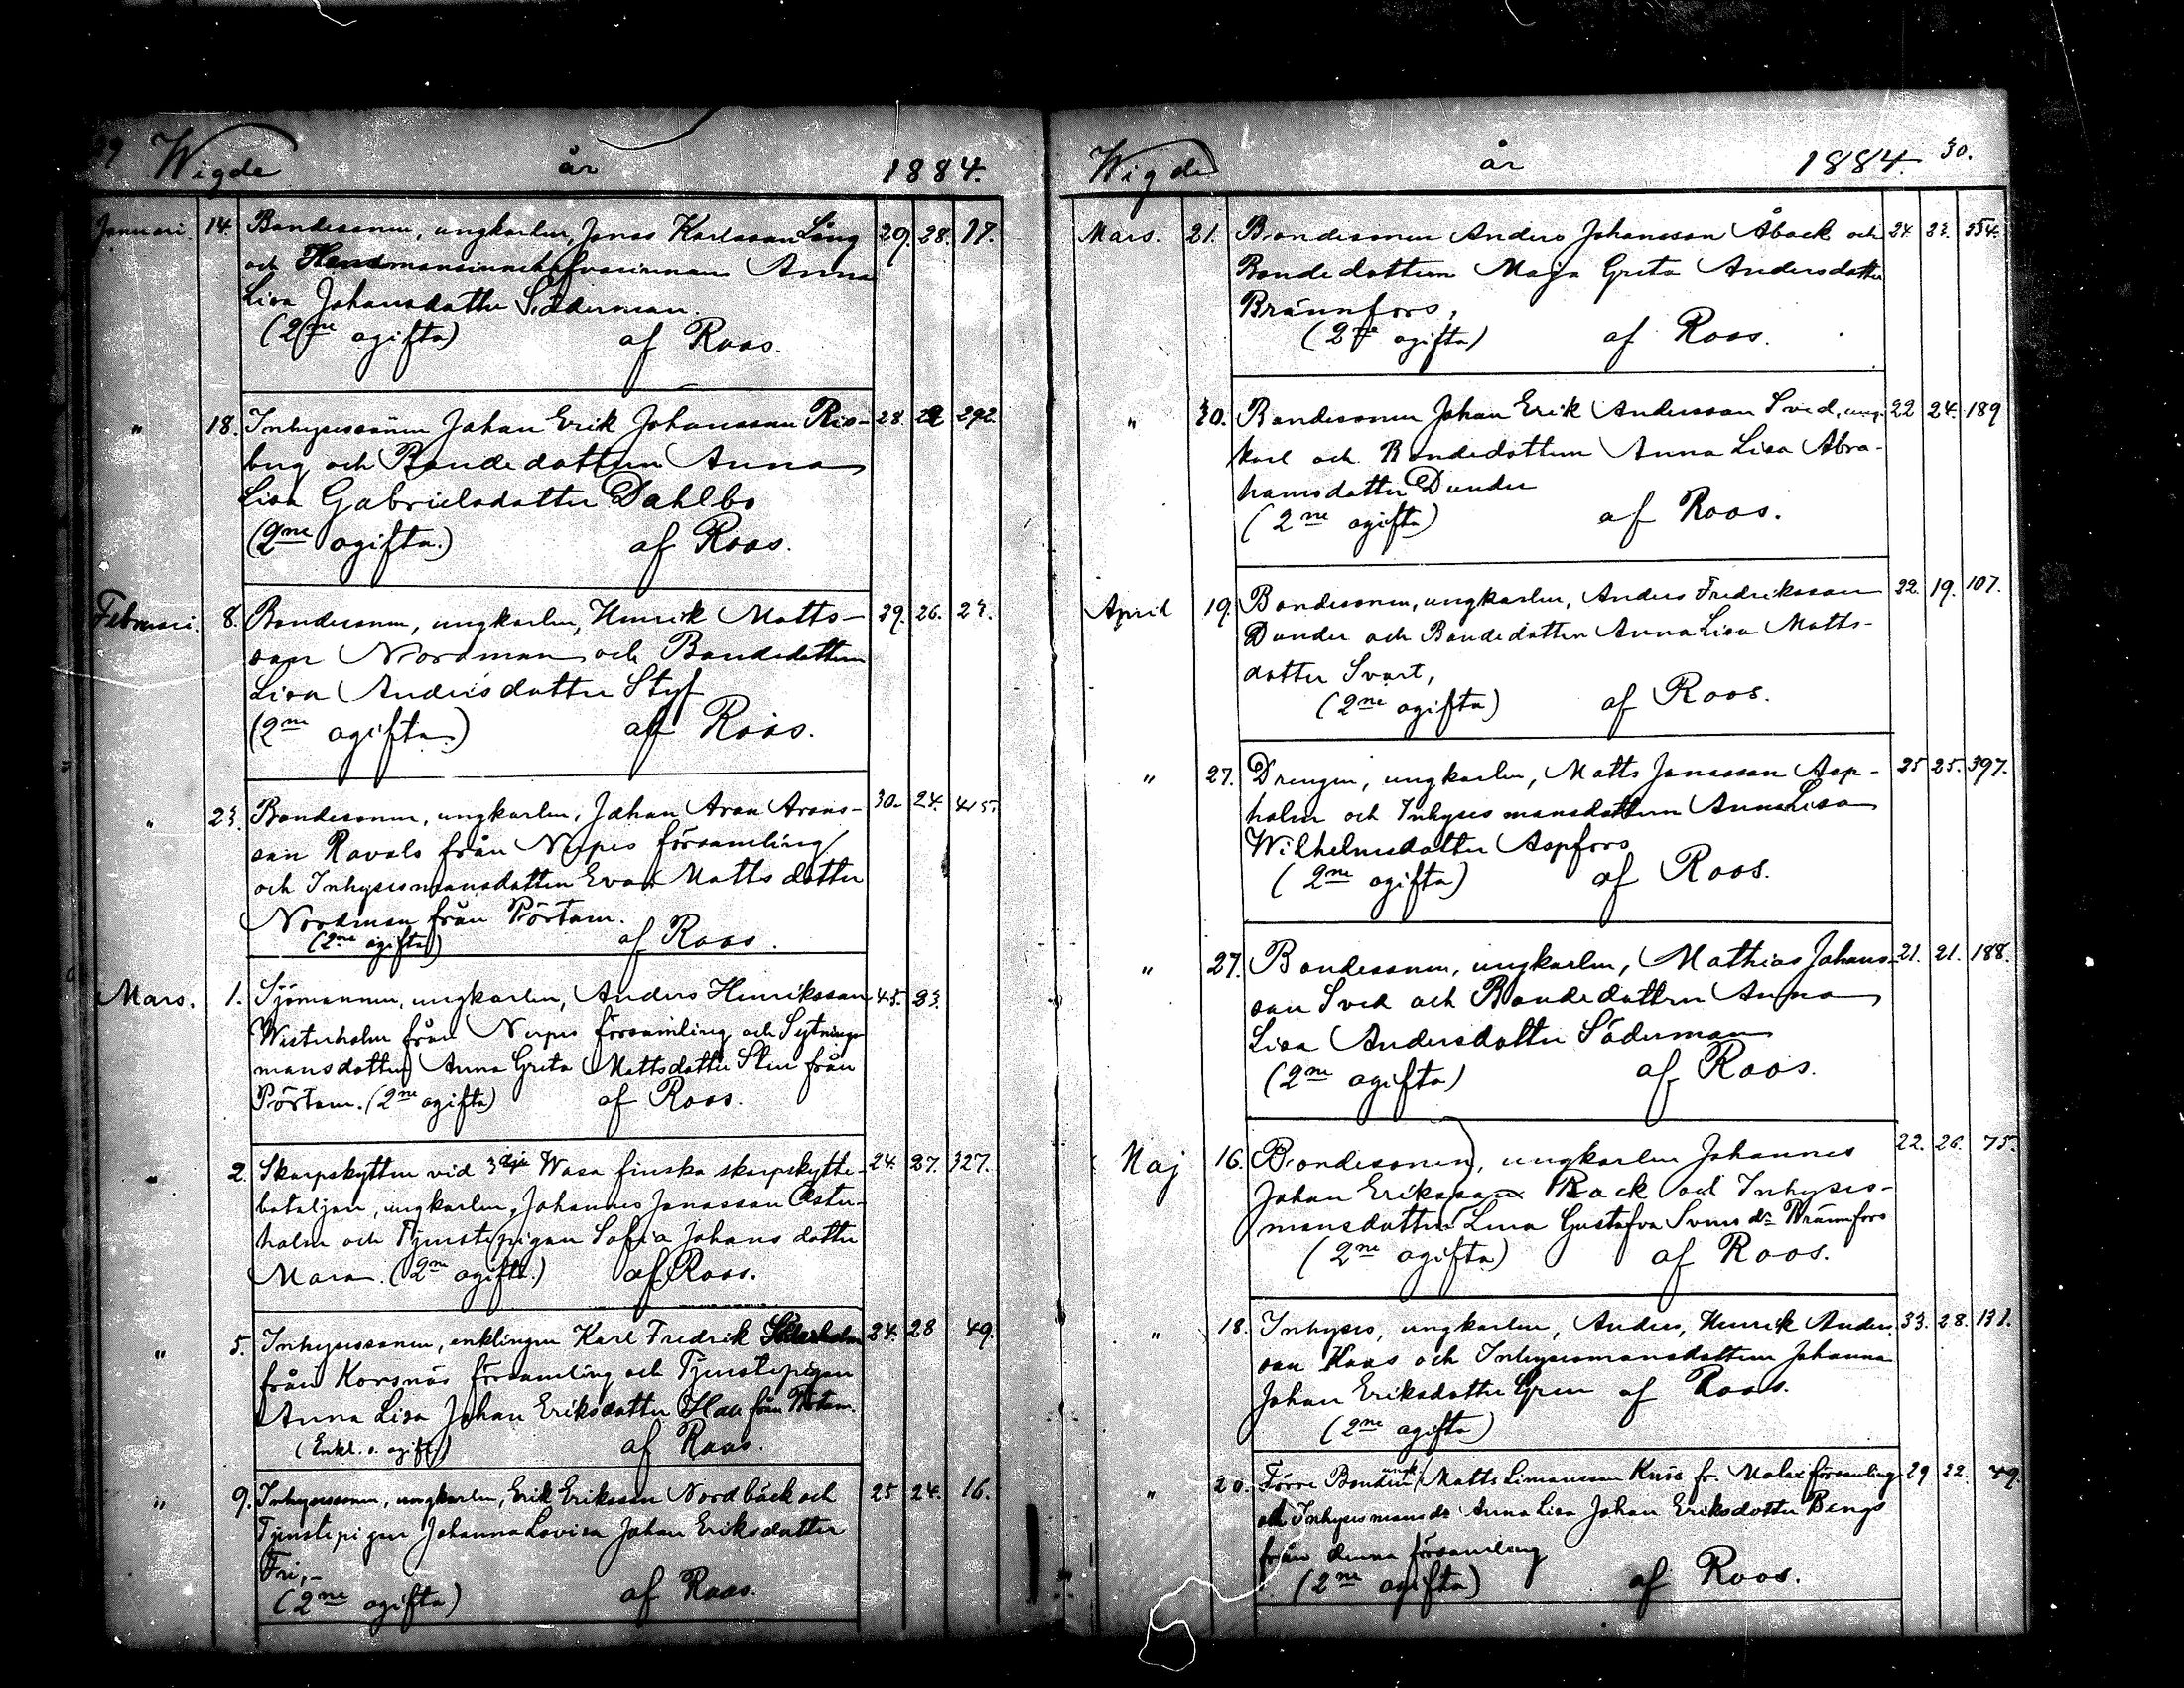 29 Wigde år 1884.
Januari. 14. Bondesonen, ungkarlen, Jonas Karlsson Lång 29. 28. 17.
och Anna
Lisa Johansdotter Söderman.
(2ne ogifta) af Roos.
" 18. Inhysessonen Johan Erik Johansson Ris- 28. 292.
berg och Bondedottern Anna
Lisa Gabrielsdotter Dahlbo
(2ne ogifta.) af Roos.
Februari. 8. Bondesonen, ungkarlen, Henrik Matts- 29. 26. 23.
son Nordman och Bondedottern
Lisa Andersdotter Styf
(2ne ogifta) af Roos.
" 23. Bondesonen, ungkarlen, Johan Aron Arons- 30. 24. 415.
son Ravals från Nerpes församling
och Inhysesmansdottern Eva Mattsdotter
Nordman från Pörtom.
(2ne ogifta) af Roos.
Mars. 1. Sjömannen, ungkarlen, Anders Henriksson 45. 33.
Westerholm från Nerpes församling och Sytnings-
mansdottern Anna Greta Mattsdotter Sten från
Pörtom. (2ne ogifta) af Roos.
" 2. Skarpskytten vid 3dje Wasa finska skarpskytte- 24. 27. 327.
bataljon, ungkarlen, Johannes Jonasson Öster-
holm och Tjenstepigan Sofia Johansdotter
Mara. (2ne ogifta.) af Roos.
" 5. Inhysessonen, enklingen Karl Fredrik Söderholm 24. 28 49.
från Korsnäs församling och Tjenstepigan
Anna Lisa Johan Eriksdotter från Pörtom.
(Enkl. o. ogift) af Roos.
" 9. Inhysessonen, ungkarlen, Erik Eriksson Nordbäck och 25 24. 16.
Tjenstepigan Johanna Lovisa Johan Eriksdotter
Fri,-
(2ne ogifta) af Roos.
Wigde år 1884. 30.
Mars. 21. Bondesonen Anders Johansson Åback och 24. 23. 354.
Bondedottern Maja Greta Andersdotter
Brännfors,
(2ne ogifta) af Roos.
" 30. Bondesonen Johan Erik Andersson Sved, ung- 22 24. 189
karl och Bondedottern Anna Lisa Abra-
hamsdotter Dunder
(2ne ogifta) af Roos.
April 19. Bondesonen, ungkarlen, Anders Fredriksson 22. 19. 107.
Dunder och Bondedottern Anna Lisa Matts-
dotter Svart,
(2ne ogifta) af Roos.
" 27. Drengen, ungkarlen, Matts Jonasson Asp- 25 25. 397.
holm och Inhysesmansdottern Anna Lisa
Wilhelmsdotter Aspfors
(2ne ogifta) af Roos.
" 27. Bondesonen, ungkarlen, Mathias Johans- 21. 21. 188.
son Sved och Bondedottern Anna
Lisa Andersdotter Söderman
(2ne ogifta) af Roos.
Maj 16. Bondesonen, ungkarlen Johannes 22. 26. 75.
Johan Eriksson Back och Inhyses-
mansdottern Lena Gustafva Svens dr Brännfors
(2ne ogifta) af Roos.
" 18. Inhyses, ungkarlen, Anders, Henrik Anders- 33. 28. 131.
son Kaas och Inhysesmansdottern Johanna
Johan Eriksdotter Gren af Roos.
(2ne ogifta)
" 20. Förre Bonden ungk. Matts Simonsson Knös fr. Malax församling 29 22. 49.
och Inhysesmans dr Anna Lisa Johan Eriksdotter Bengs
från denna församling
(2ne ogifta) af Roos.